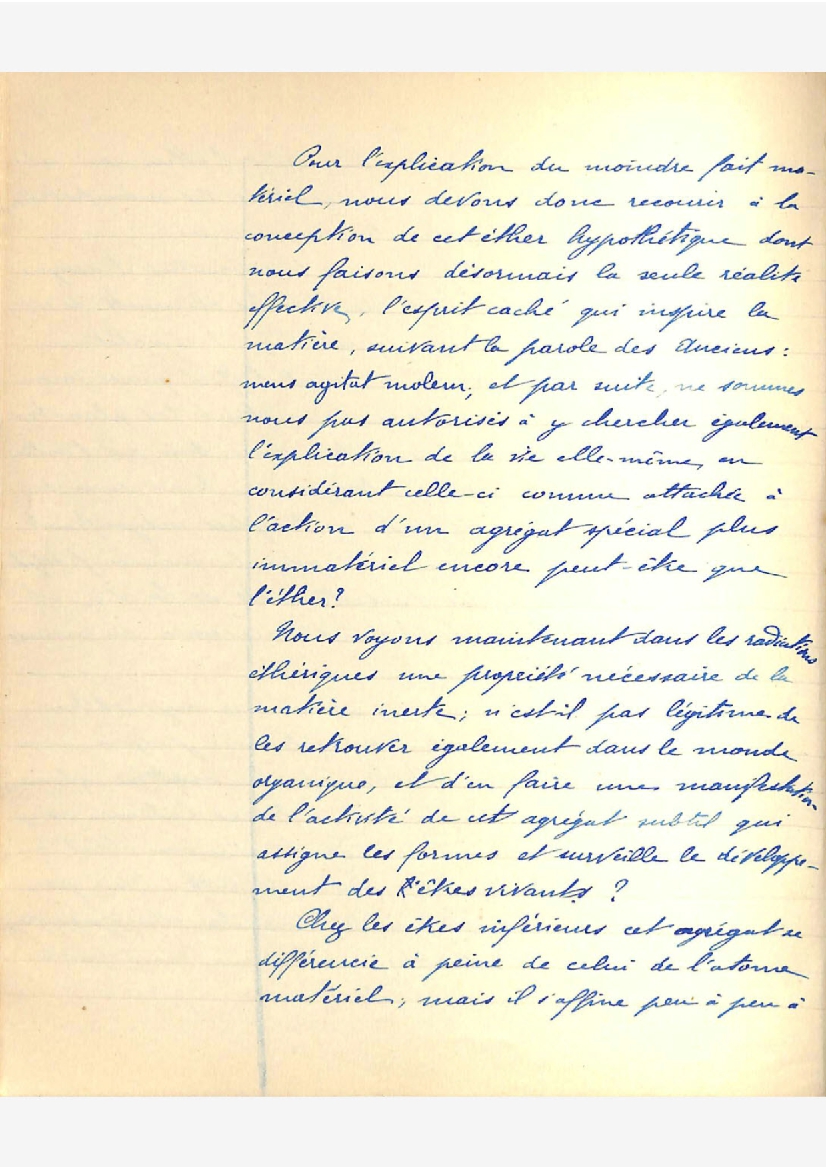 Pour l'explication du moindre fait ma-
tériel, nous devons donc recourir à la
conception de cet éther hypothétique dont
nous faisons désormais la seule réalité
effective, l'esprit caché qui inspire la
matière, suivant la parole des Anciens :
mens agitat molem; et par suite, ne sommes
nous pas autorisés à y chercher également
l'explication de la vie elle-même, en
considérant celle-ci comme attachée à
l'action d'un agrégat spécial plus
immatériel encore peut-être que
l'éther?
Nous voyons maintenant dans les radiations
éthériques une propriété nécessaire de la
matière inerte; n'est-il pas légitime de
les retrouver également dans le monde
organique, et d'en faire une manifestation
de l'activité de cet agrégat subtil qui
assigne les formes et surveille le développe-
ment des êtres vivants ?
Chez les êtres inférieurs cet agrégat se
différencie à peine de celui de l'atome
matériel; mais il s'affine peu à peu à